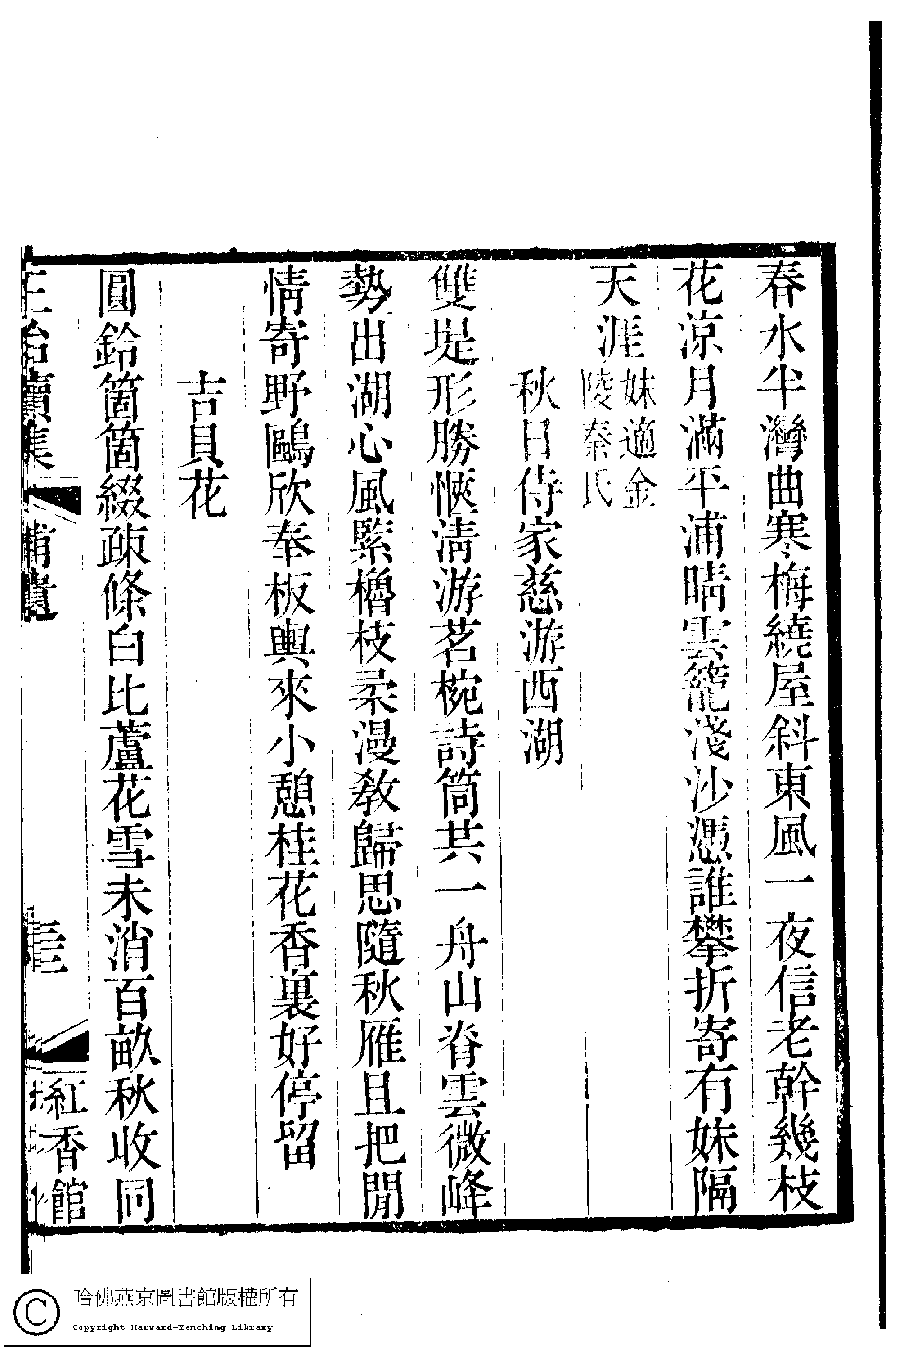 春水半灣曲寒梅繞屋斜東風一夜信老幹幾枝
花涼月滿平浦晴雲籠淺沙憑誰攀折寄有妹隔
天涯妹適金
陵秦氏
秋日侍家慈游西湖
雙堤形勝愜清游茗椀詩筒共一舟山脊雲微峰
勢出湖心風緊櫓枝柔漫教歸思隨秋雁且把閒
情寄野鷗欣奉板輿來小憩桂花香裏好停留
吉貝花
圓鈴箇箇綴疎條白比蘆花雪未消百畝秋收同
續集
補遺
紅香館
哈佛燕京圖書館版權所有
Copyright Harvard-Yenching Library